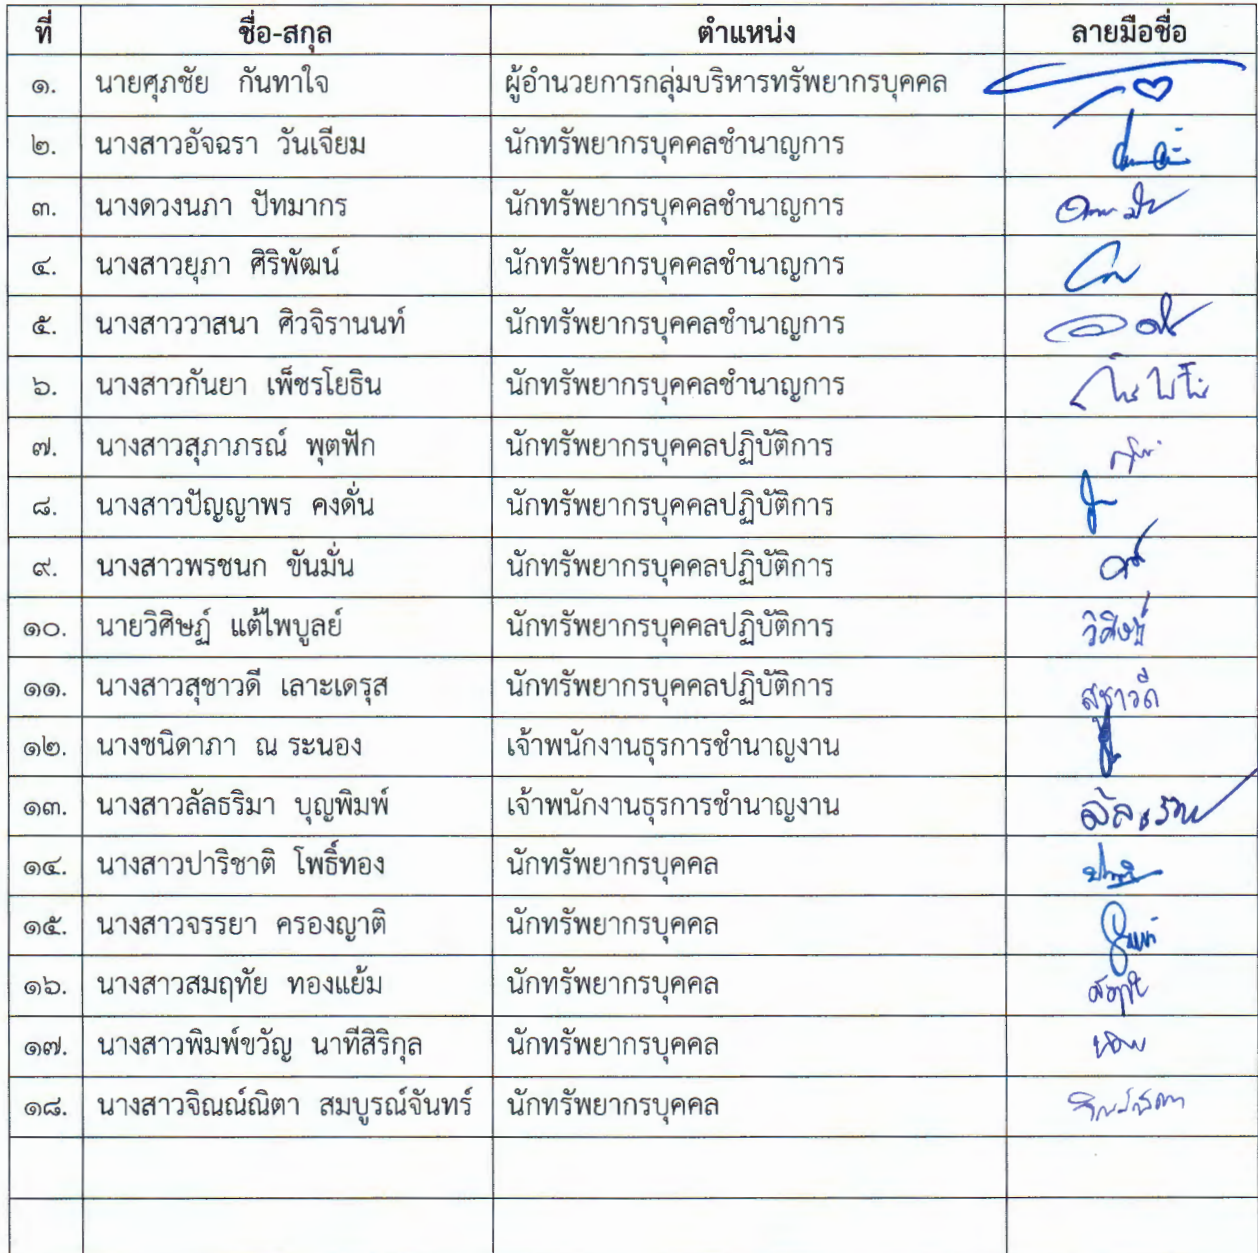 ที่ ชื่อ-สกุล ตำแหน่ง ลายมือชื่อ
๑. นายศุภชัย กันทาใจ ผู้อำนวยการกลุ่มบริหารทรัพยากรบุคคล
๒. นางสาวอัจฉรา วันเจียม นักทรัพยากรบุคคลชำนาญการ
๓. นางดวงนภา ปัทมากร นักทรัพยากรบุคคลชำนาญการ
๔. นางสาวยุภา ศิริพัฒน์ นักทรัพยากรบุคคลชำนาญการ
๕. นางสาววาสนา ศิวจิรานนท์ นักทรัพยากรบุคคลชำนาญการ
๖. นางสาวกันยา เพ็ชรโยธิน นักทรัพยากรบุคคลชำนาญการ
๗. นางสาวสุภาภรณ์ พุตฟัก นักทรัพยากรบุคคลปฏิบัติการ
๘. นางสาวปัญญาพร คงดั่น นักทรัพยากรบุคคลปฏิบัติการ
๙. นางสาวพรชนก ขันมั่น นักทรัพยากรบุคคลปฏิบัติการ
๑๐. นายวิศิษฏ์ แต้ไพบูลย์ นักทรัพยากรบุคคลปฏิบัติการ วิศิษฏ์
๑๑. นางสาวสุชาวดี เลาะเดรุส นักทรัพยากรบุคคลปฏิบัติการ สุชาวดี
๑๒. นางชนิดาภา ณ ระนอง เจ้าพนักงานธุรการชำนาญงาน
๑๓. นางสาวลัลธริมา บุญพิมพ์ เจ้าพนักงานธุรการชำนาญงาน
๑๔. นางสาวปาริชาติ โพธิ์ทอง นักทรัพยากรบุคคล
๑๕. นางสาวจรรยา ครองญาติ นักทรัพยากรบุคคล
๑๖. นางสาวสมฤทัย ทองแย้ม นักทรัพยากรบุคคล
๑๗. นางสาวพิมพ์ขวัญ นาทีสิริกุล นักทรัพยากรบุคคล
๑๘. นางสาวจิณณ์ณิตา สมบูรณ์จันทร์ นักทรัพยากรบุคคล